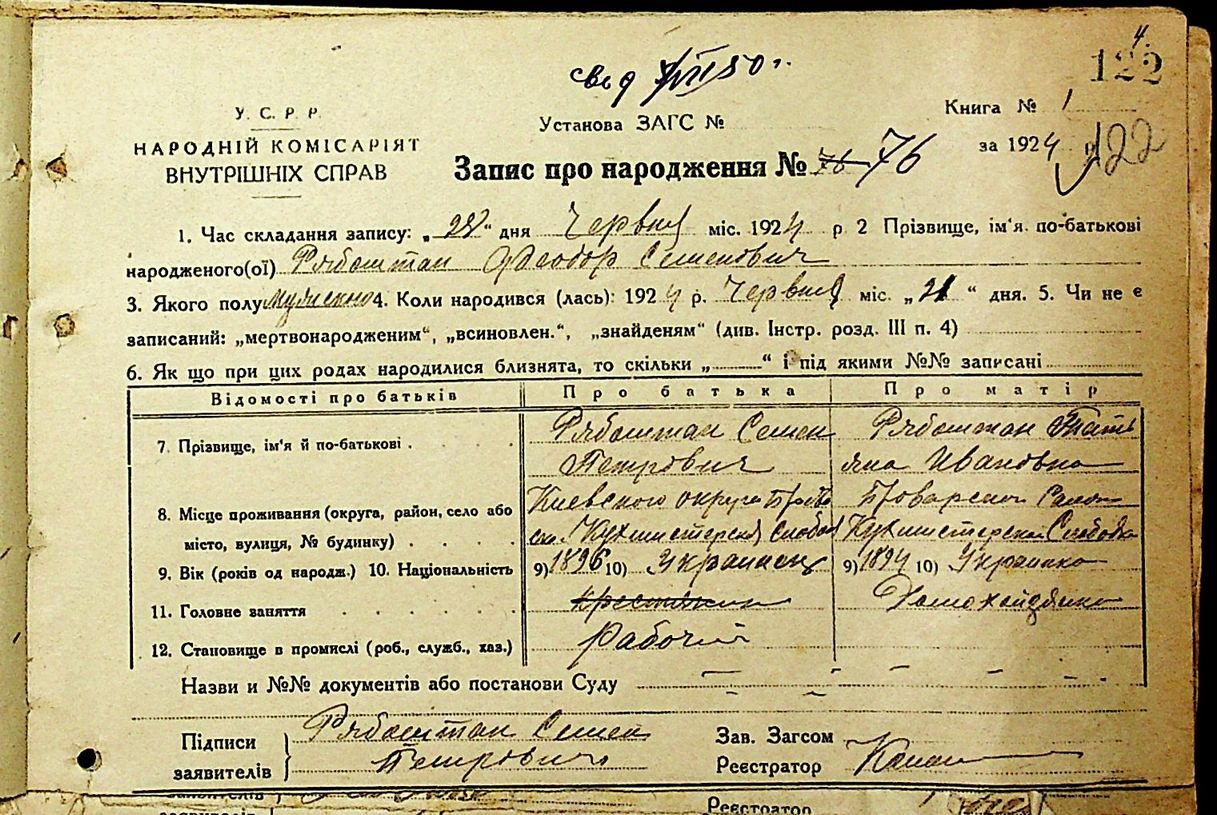 4.
122
свед XII 50 г.
У. С. Р. Р.
НАРОДНІЙ КОМІСАРІЯТ
ВНУТРІШНІХ СПРАВ
Установа ЗАГС №
Книга № 1
за 1924 р. 122
Запис про народження № 76 76
1. Час складання запису: „28“ дня Червня міс. 1924 р 2 Прізвище, ім'я по-батькові
народженого(ої) Рябоштан Феодор Семенович
3. Якого полу мужскно 4. Коли народився (лась): 1924 р. Червня міс. „21“ дня. 5. Чи не є
записаний: „мертвонародженим“, „всиновлен.“, „знайденям“ (див. Інстр. розд. III п. 4)
6. Як що при цих родах народилися близнята, то скільки „ “ і під якими №№ записані
Відомості про батьків Про батька Про матір
7. Прізвище, ім'я й по-батькові Рябоштан Семен Рябоштан Тать
Петрович яна Ивановна
8. Місце проживання (округа, район, село або Киевского округа Броварской
місто, вулиця, № будинку) Кухмистерская Слобод Кухмистерская Слободка
9. Вік (років од народж.) 10. Національність 9) 1896 10) Украинец 9) 1894 10) Украинка
11. Головне заняття крестянин Домохазяйка
12. Становище в промислі (роб., служб., хаз.) Рабочий
Назви и №№ документів або постанови Суду
Підписи
заявителів
Рябоштан Семен
Петрович
Зав. Загсом
Реєстратор
Реєстратор